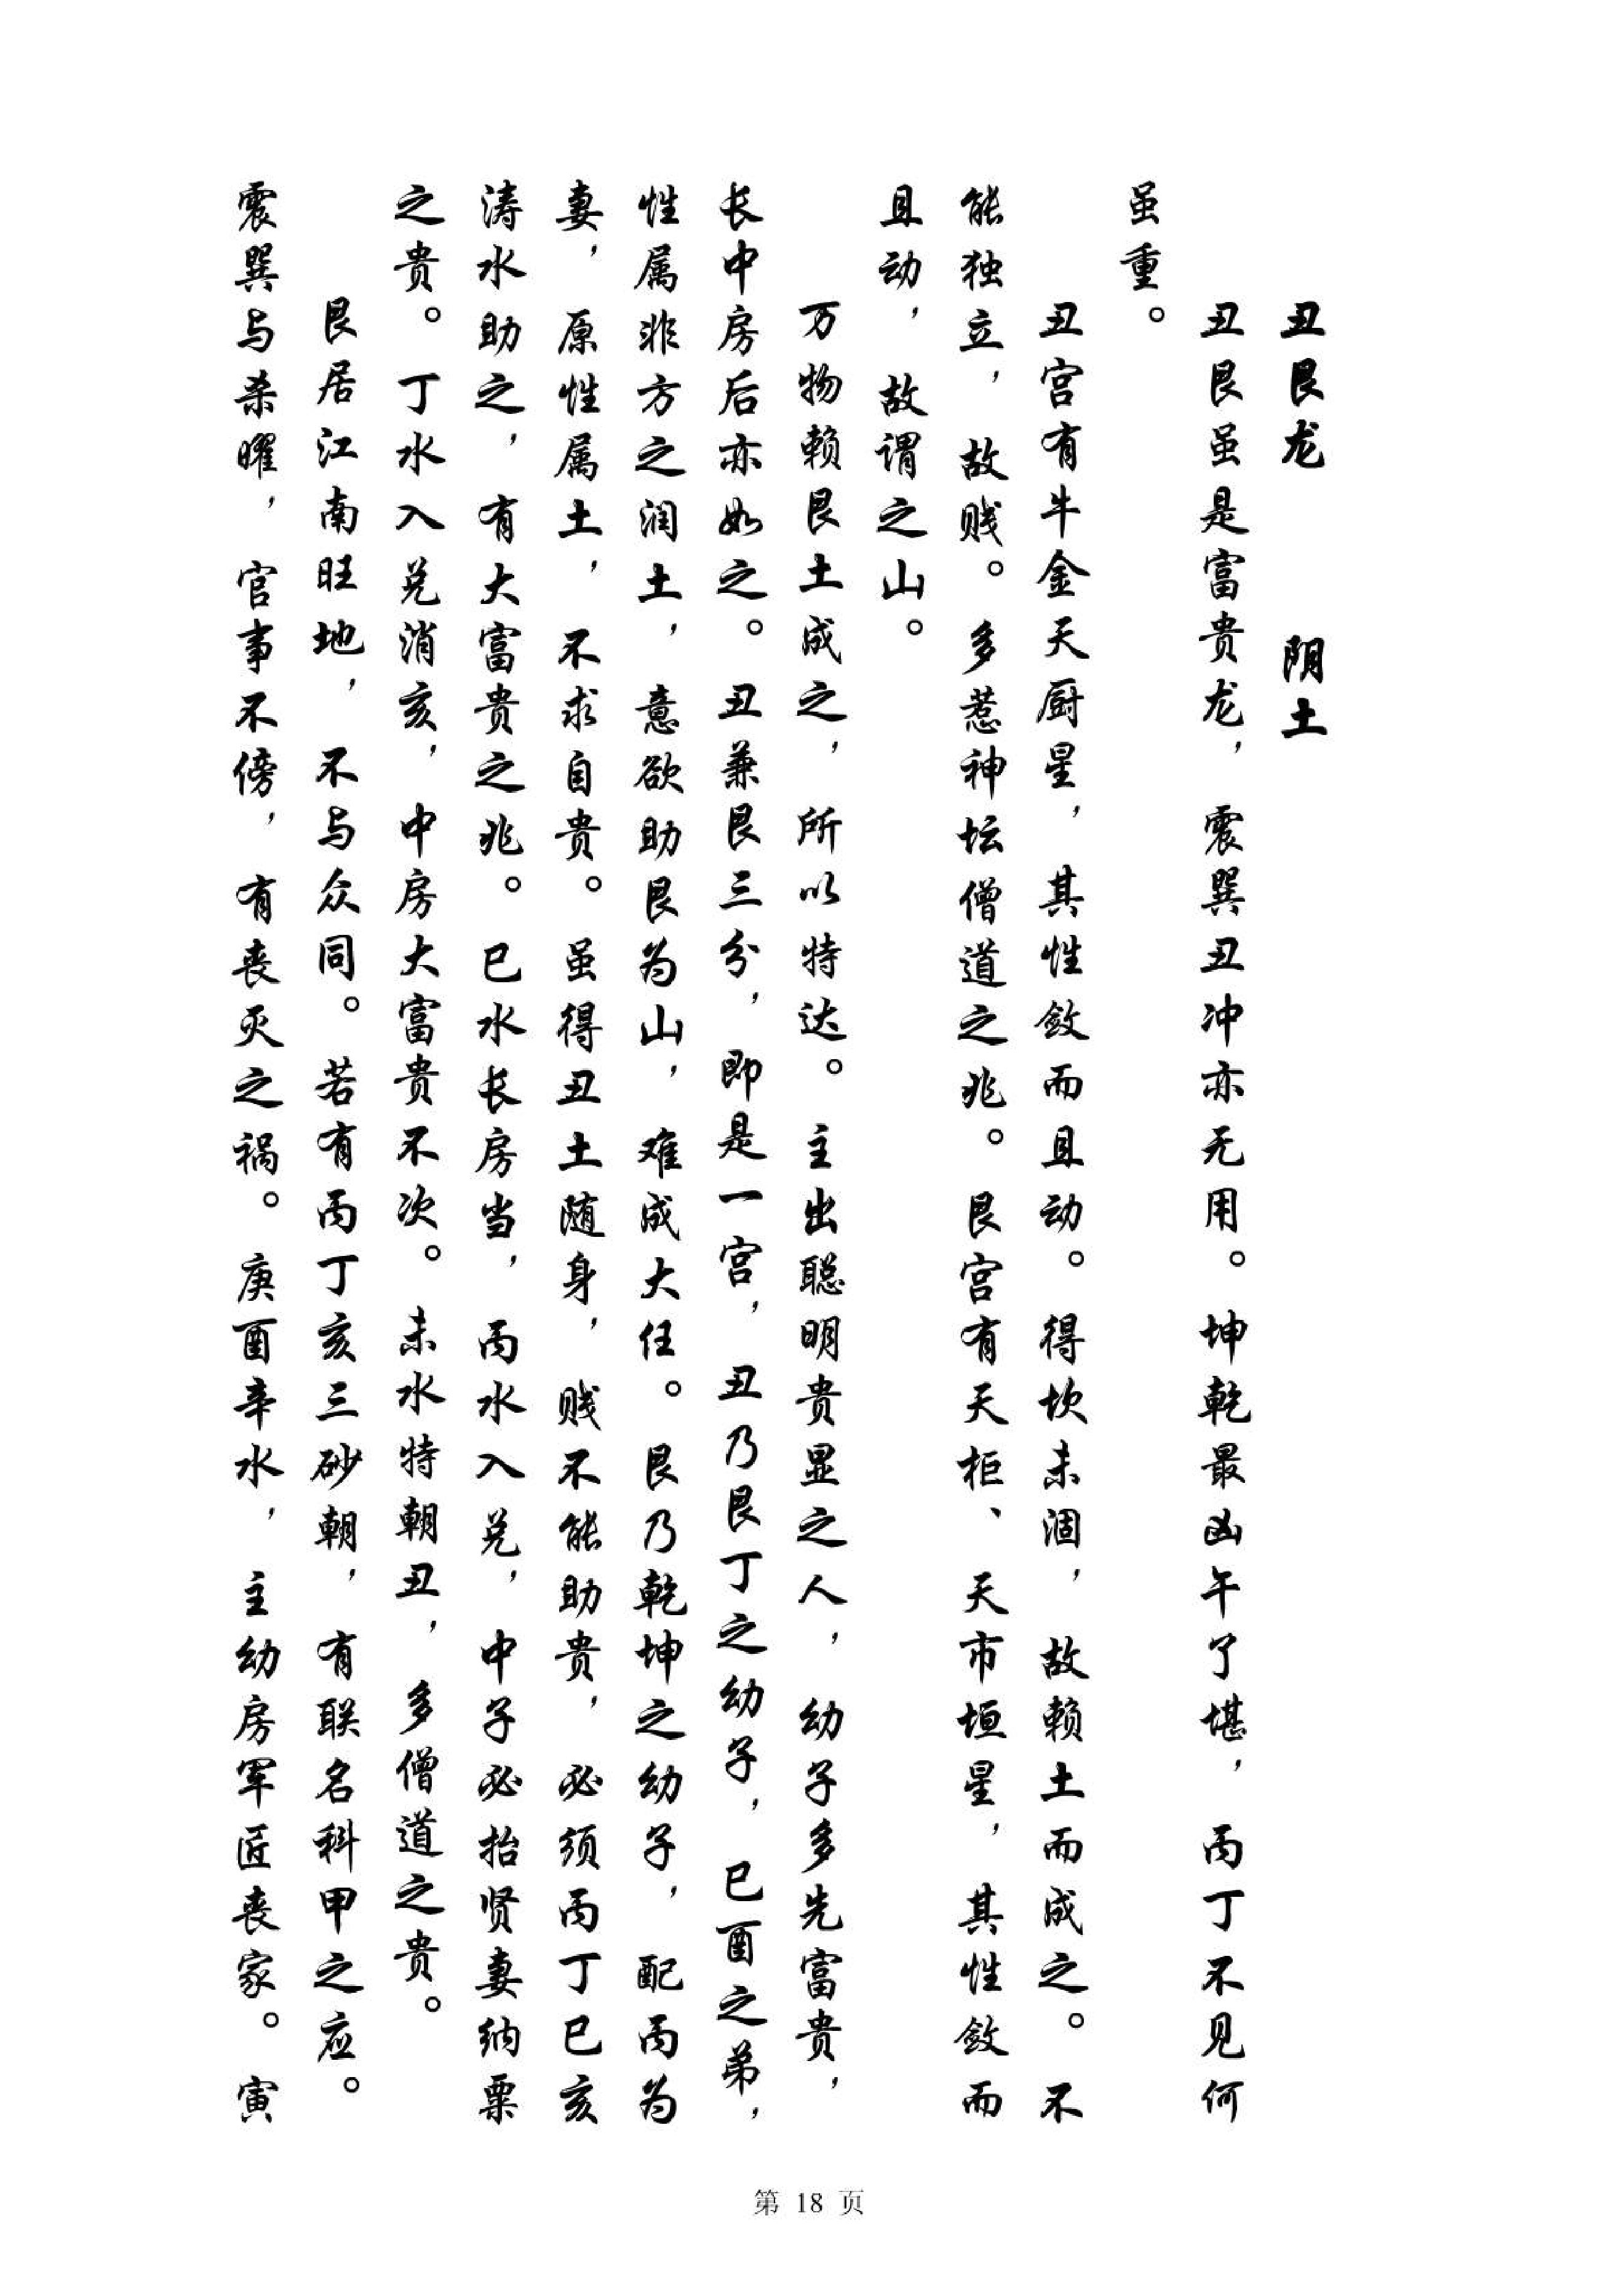 丑艮龙　　阴土
丑艮虽是富贵龙，震巽丑冲亦无用。坤乾最凶午了堪，丙丁不见何
虽重。
丑宫有牛金天厨星，其性敛而且动。得坎未涸，故赖土而成之。不
能独立，故贱。多惹神坛僧道之兆。艮宫有天柜、天市垣星，其性敛而
且动，故谓之山。
万物赖艮土成之，所以特达。主出聪明贵显之人，幼子多先富贵，
长中房后亦如之。丑兼艮三分，即是一宫，丑乃艮丁之幼子，巳酉之弟，
性属非方之润土，意欲助艮为山，难成大任。艮乃乾坤之幼子，配丙为
妻，原性属土，不求自贵。虽得丑土随身，贱不能助贵，必须丙丁巳亥
涛水助之，有大富贵之兆。巳水长房当，丙水入兑，中子必抬贤妻纳粟
之贵。丁水入兑消亥，中房大富贵不次。未水特朝丑，多僧道之贵。
艮居江南旺地，不与众同。若有丙丁亥三砂朝，有联名科甲之应。
震巽与杀曜，官事不傍，有丧灭之祸。庚酉辛水，主幼房军匠丧家。寅
第 18 页